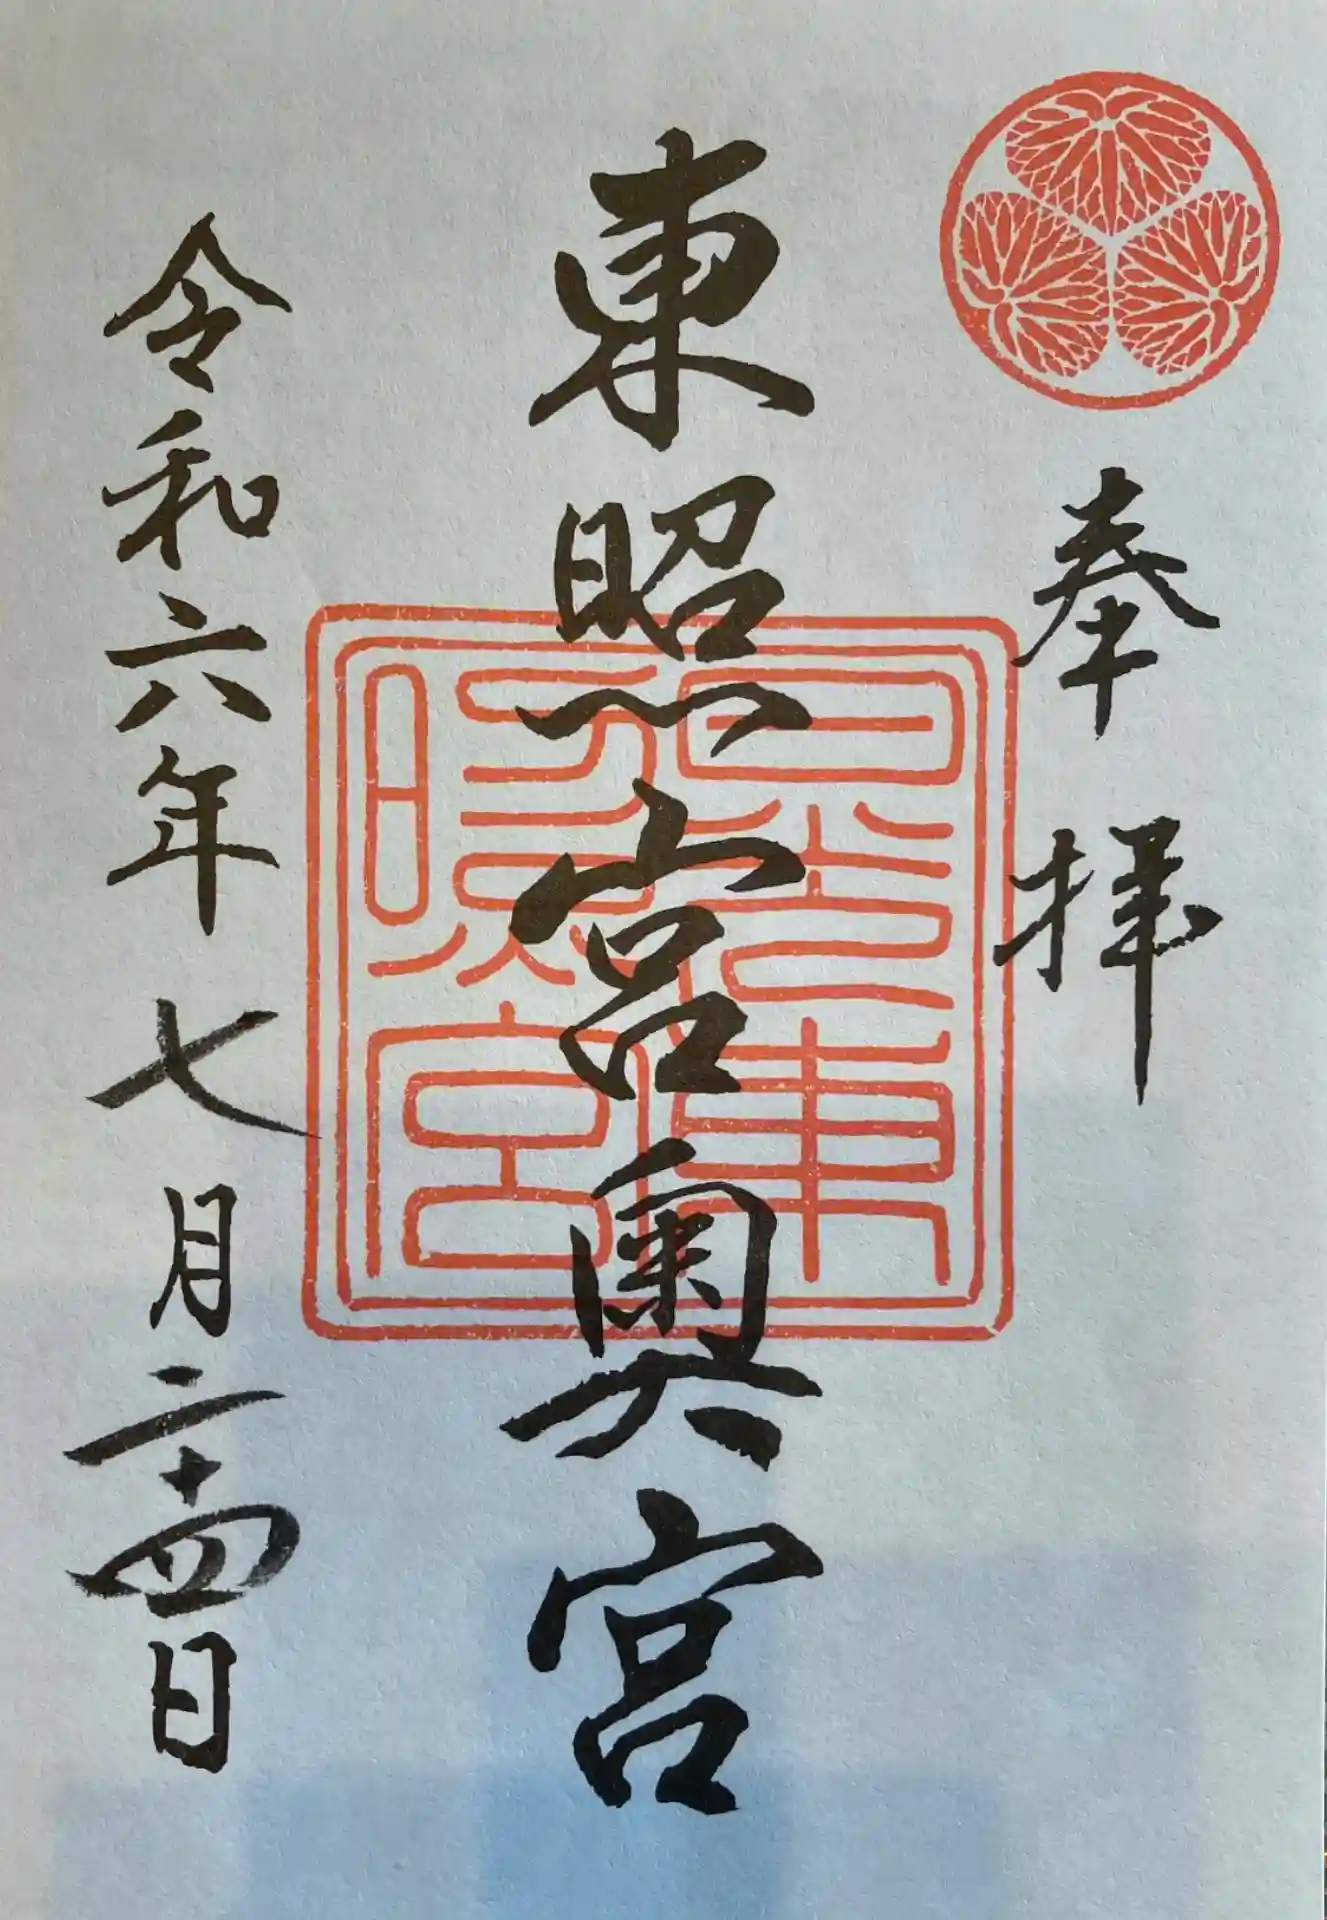 奉拝
東照宮奥宮
日光東
照宮
令和六年七月二十四日